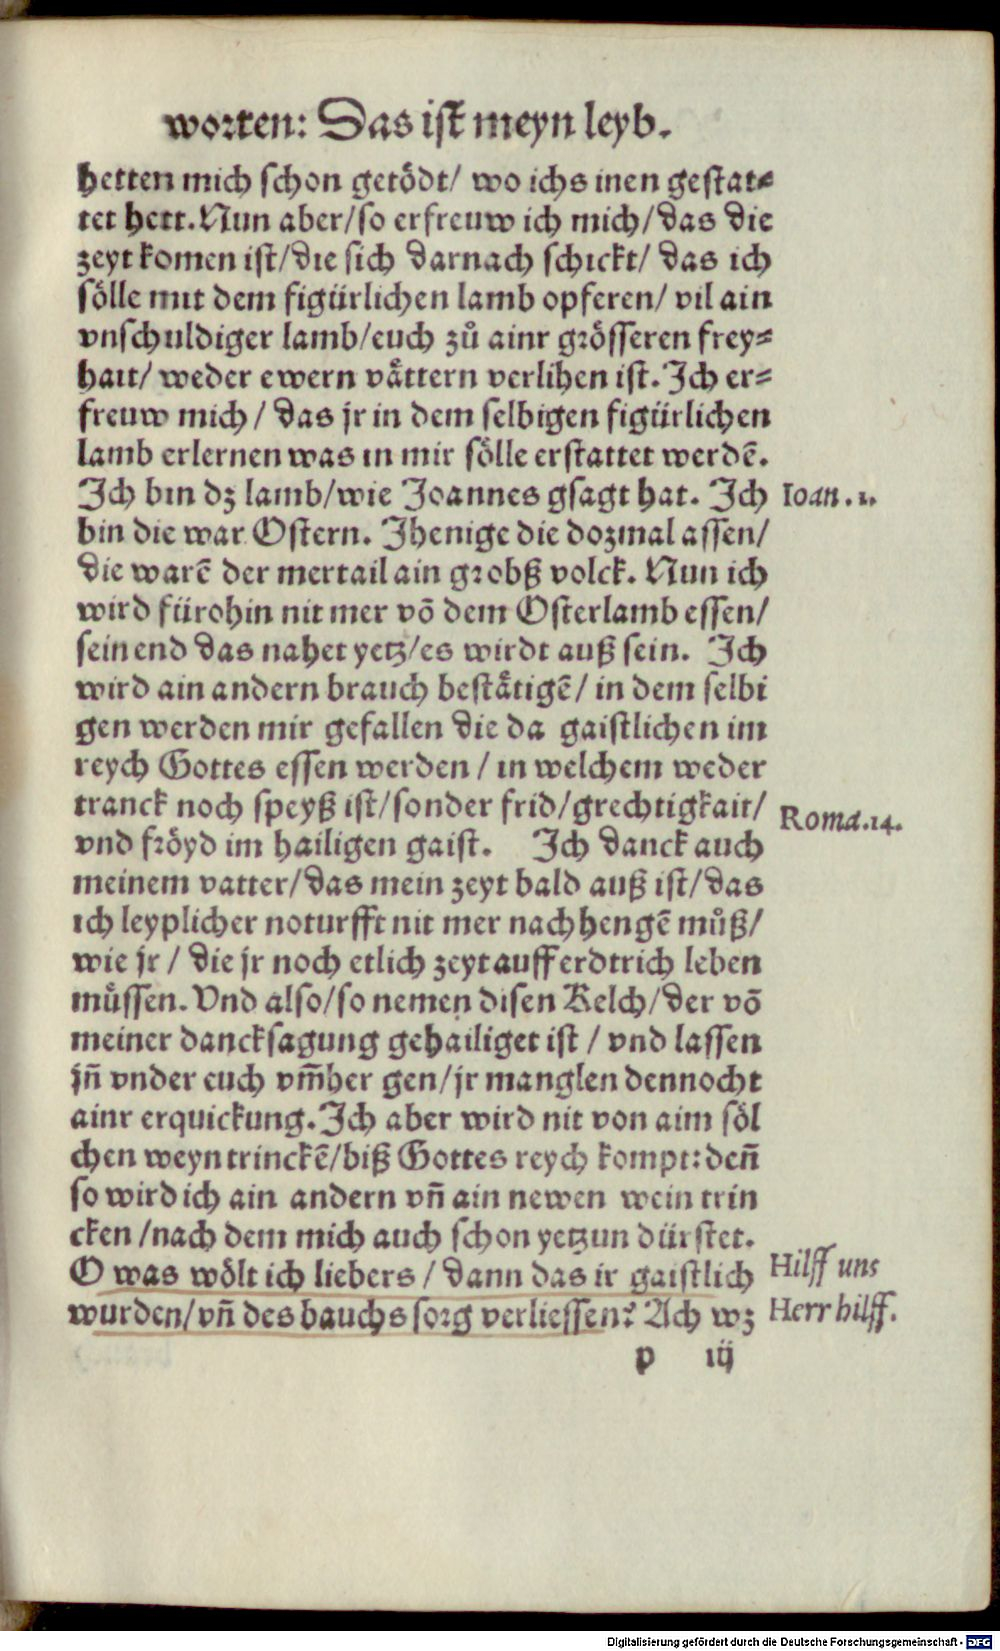 worten: Das ist meyn leyb.
hetten mich schon getödt/ wo ichs inen gestat⸗
tet hett. Nun aber/so erfreuw ich mich/das die
zeyt komen ist/die sich darnach schickt/ das ich
sölle mit dem figürlichen lamb opferen/ vil ain
vnschuldiger lamb/euch zů ainr grösseren frey⸗
hait/ weder ewern våttern verlihen ist. Ich er⸗
freuw mich/ das jr in dem selbigen figürlichen
lamb erlernen was in mir sölle erstattet werdē.
Ich bin dz lamb/wie Joannes gsagt hat. Ich
Ioan. 1.
bin die war Ostern. Jhenige die dozmal assen/
die warē der mertail ain grobß volck. Nun ich
wird fürohin nit mer vō dem Osterlamb essen/
sein end das nahet yetz/es wirdt auß sein. Ich
wird ain andern brauch beståtigē/ in dem selbi
gen werden mir gefallen die da gaistlichen im
reych Gottes essen werden/ in welchem weder
tranck noch speyß ist/sonder frid/grechtigkait/
Roma.14.
vnd fröyd im hailigen gaist. Ich danck auch
meinem vatter/das mein zeyt bald auß ist/das
ich leyplicher noturfft nit mer nach hengē můß/
wie jr/ die jr noch etlich zeyt auff erdtrich leben
můssen. Vnd also/so nemen disen Kelch/der vō
meiner dancksagung gehailiget ist/ vnd lassen
jn̄ vnder euch vm̄her gen/jr manglen dennocht
ainr erquickung. Ich aber wird nit von aim söl
chen weyn trinckē/biß Gottes reych kompt: den̄
so wird ich ain andern vn̄ ain newen wein trin
cken/nach dem mich auch schon yetzun dürstet.
O was wölt ich liebers/ dann das ir gaistlich
Hilff uns
wurden/vn̄ des bauchs sorg verliessen? Ach wz
Herr hilff.
p iij
Digitalisierung gefördert durch die Deutsche Forschungsgemeinschaft - DFG